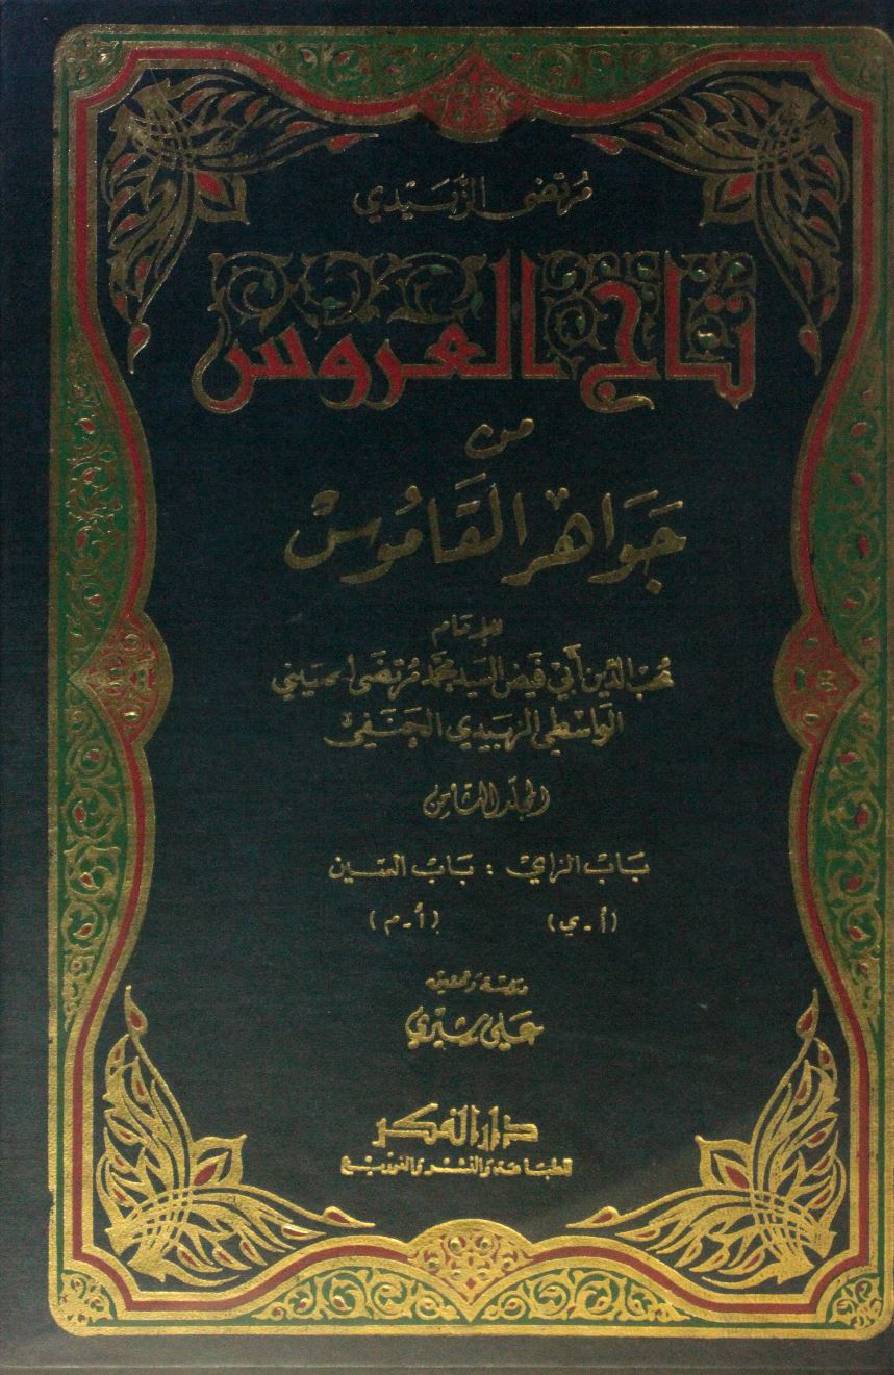 مُرتضى الزَّبَيْدي
تاج العروس
من
جَوَاهِر القَامُوسْ
للإمَام
محبّ الدّين أبي فَيض السَيد محمّد مُرتضَى الحسَيني
الوَاسْطي الزبيدي الحَنَفي
المجلّد الثامِن
بَابْ الزاي : بَابْ السّين
(أ - ي) (أ - م)
دراسَة وتحقيق
عَلي شِيري
دار الفكر
للطبَاعة وَالنشر وَالتوزيع